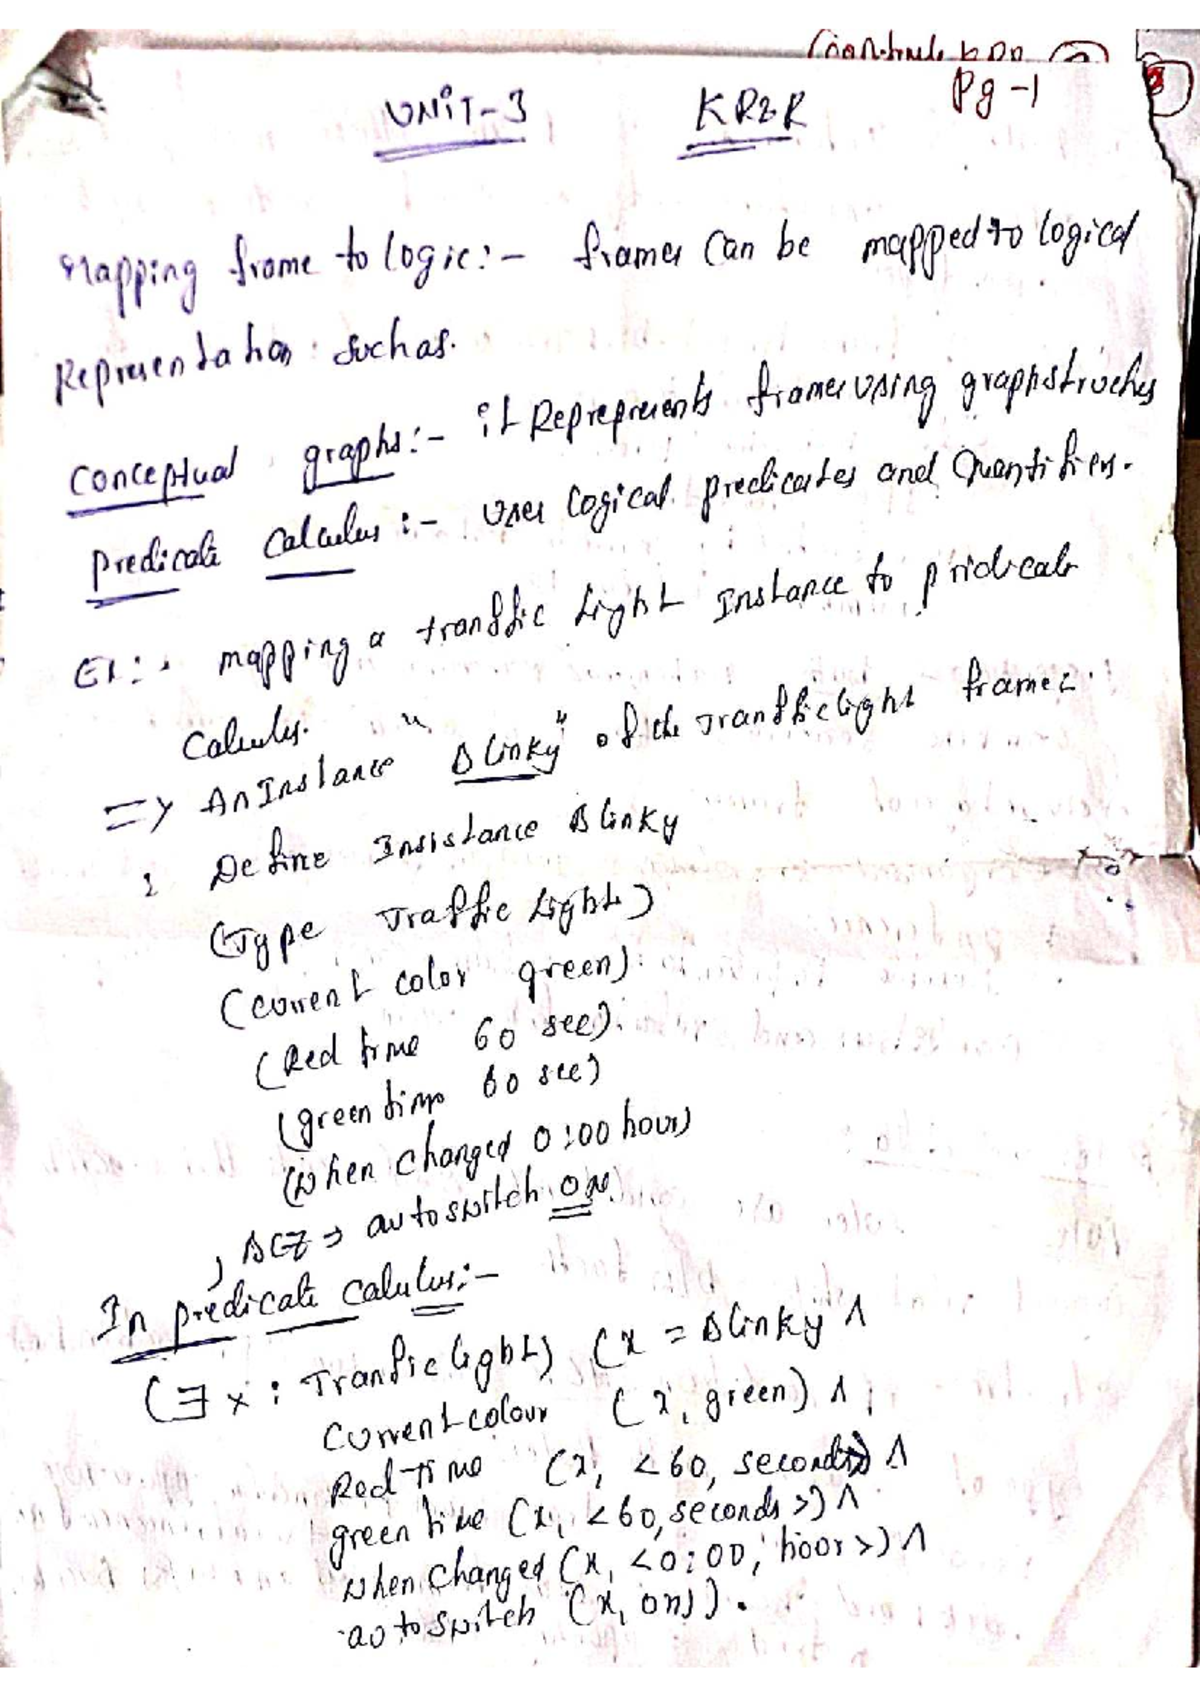 Pg -1
UNIT-3 KR&R
Mapping frame to logic:- frames Can be mapped to logical
Representation such as.
Conceptual graphs:- it Represents frame using graph structures
predicate Calculus:- uses logical predicates and Quantifiers.
Ex:- mapping a traffic light Instance to pridicate
Calculus.
=> An Instance "Blinky" of the Traffic light frame:
; Define Insistance Blinky
(Type Traffic light)
(current color green)
(Red time 60 sec).
(green time 60 sec)
(When changed 0:00 hour)
autoswitch ON
In predicate calulus:-
(∃ x : Traffic light) (x = Blinky ∧
Current colour (x, green) ∧
Red Time (x, <60, seconds>) ∧
green time (x, <60, seconds>) ∧
when changed (x, <0:00, hoor>) ∧
autoswitch (x, on)).